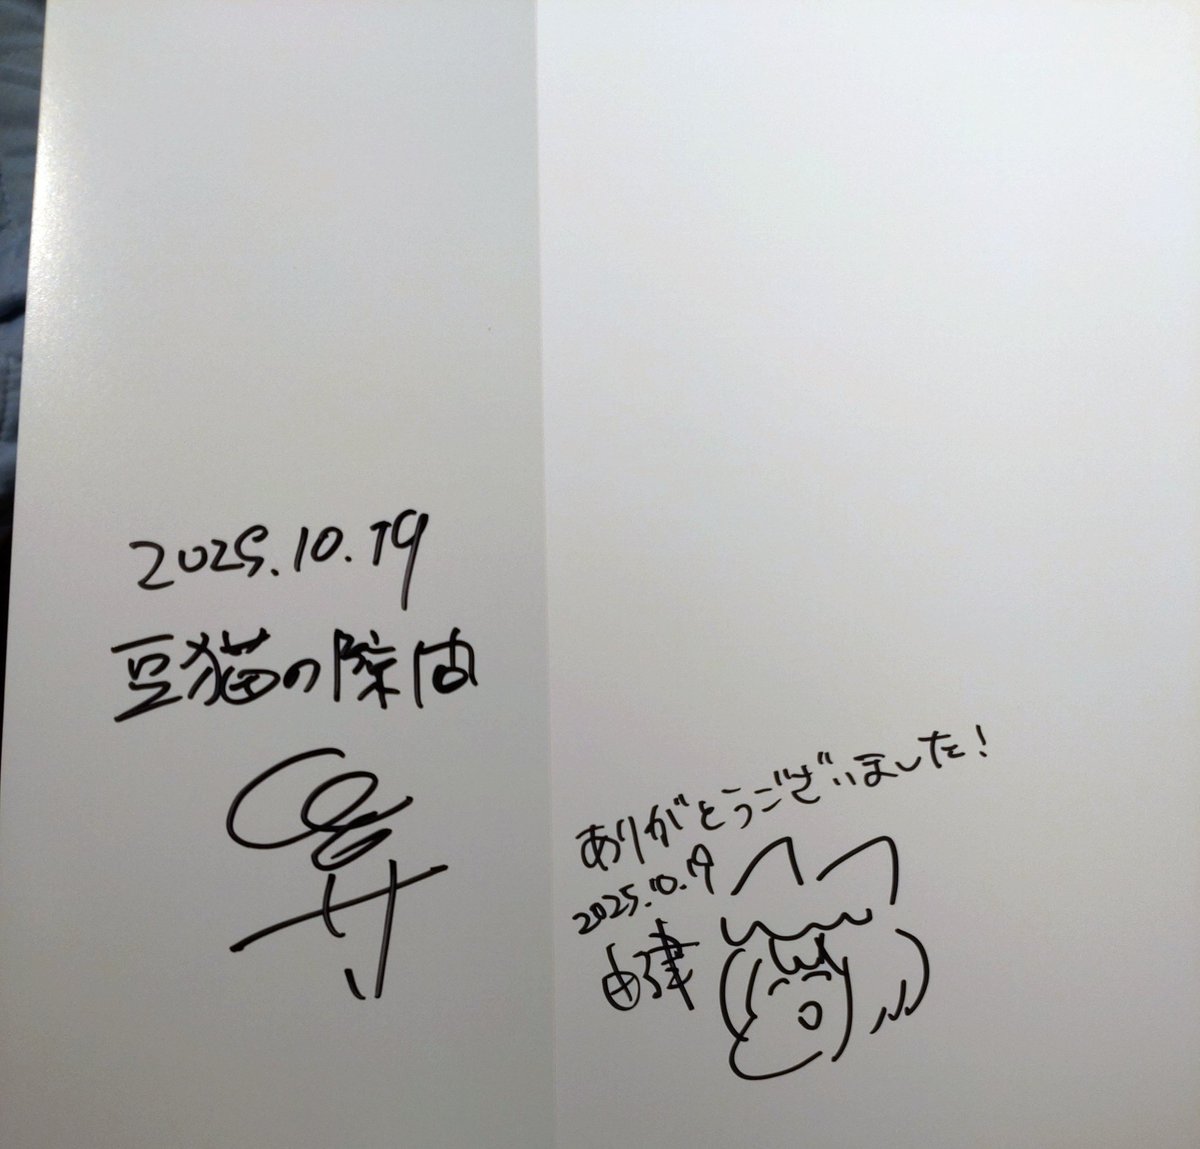 2025.10.19
豆猫の隙間
ありがとうございました!
2025.10.19
由津